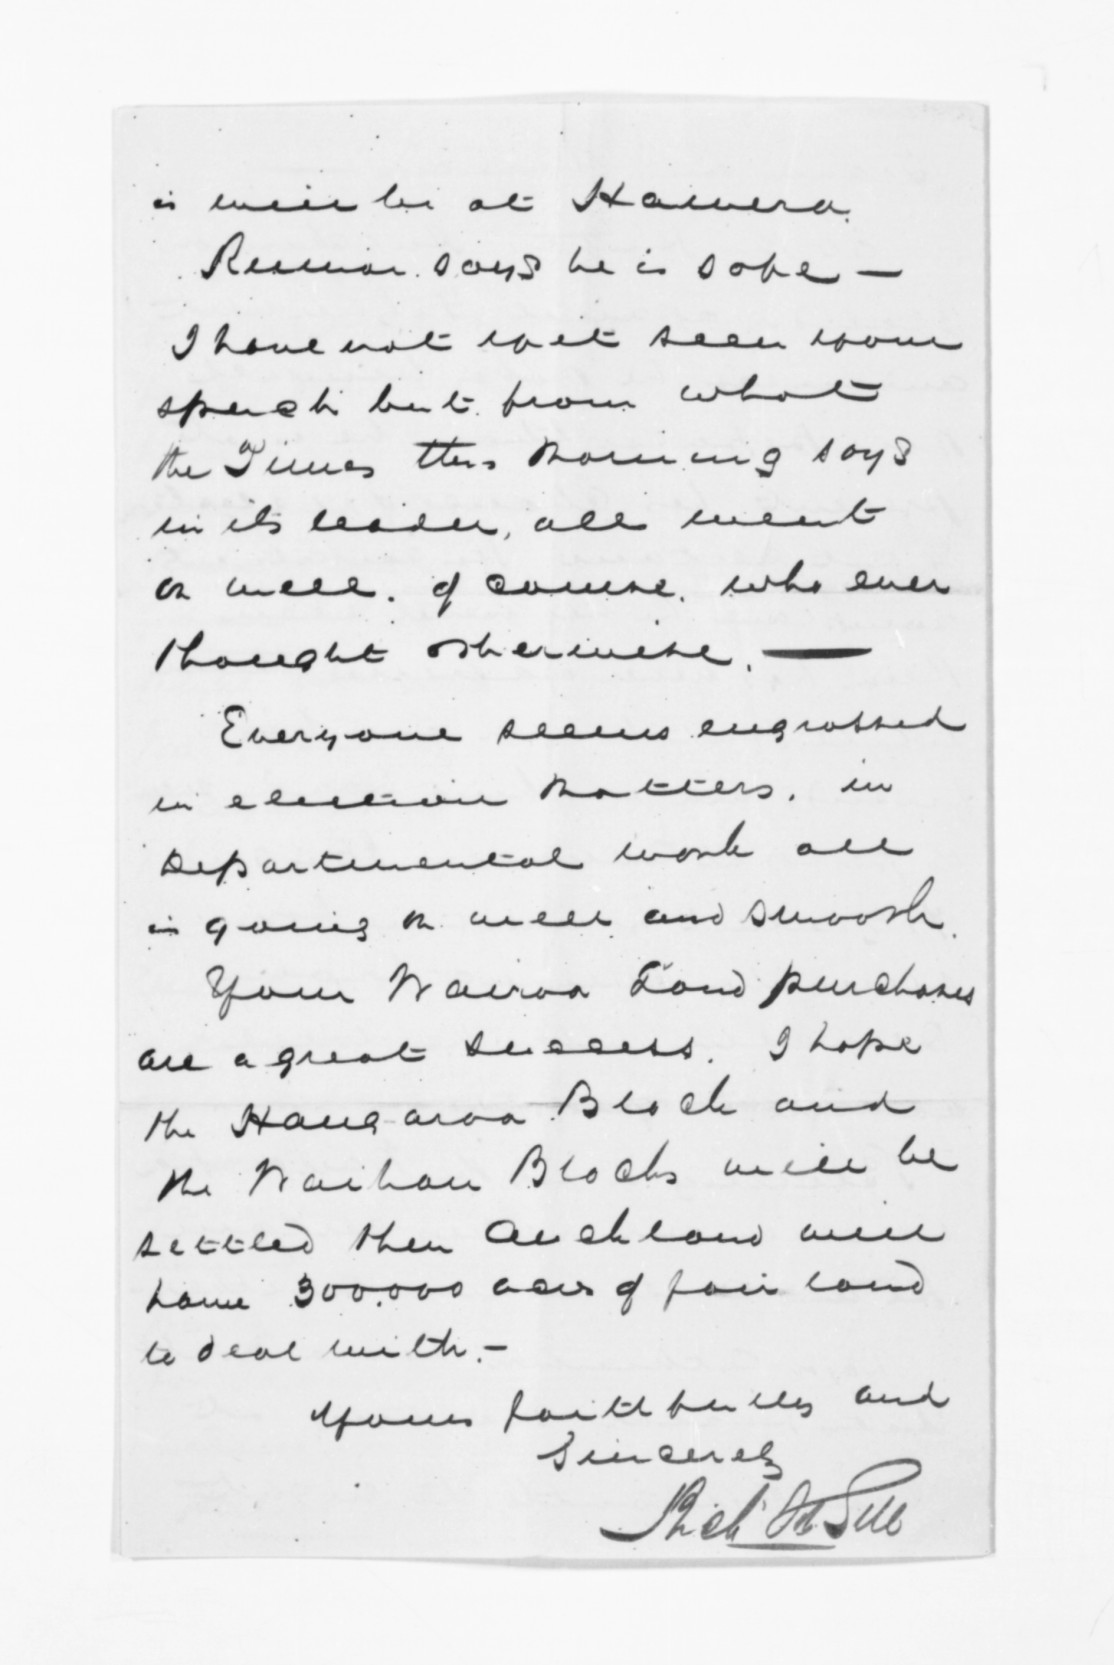 is will be at Hawera.
Rumour says he is safe —
I have not yet seen your
speech but from what
the Times this morning says
in its leader, all went
on well. of course. who ever
thought otherwise. —
Everyone seems engrossed
in election matters. in
Departmental work all
is going on well and smooth.
Your Wairoa Land purchases
are a great success. I hope
the Hangaroa Block and
the Waihau Blocks will be
settled then Auckland will
have 300,000 acres of fair land
to deal with. —
Yours faithfully and
Sincerely
Rich